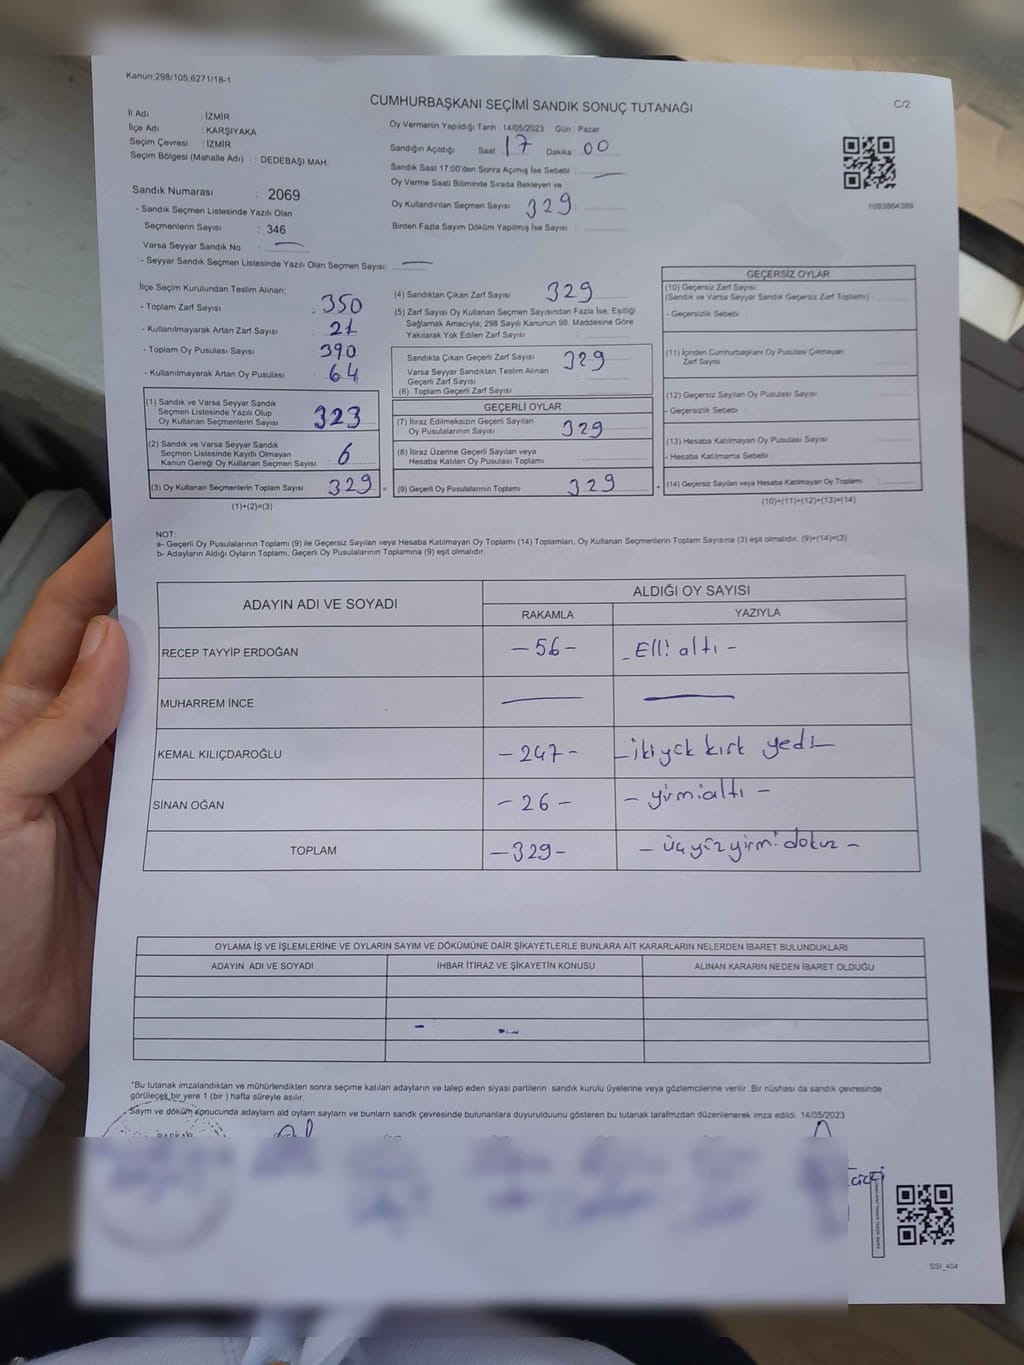 Kanun;298/105,6271/18-1
CUMHURBAŞKANI SEÇİMİ SANDIK SONUÇ TUTANAĞI
C/2
İl Adı : İZMİR
İlçe Adı : KARŞIYAKA
Seçim Çevresi : İZMİR
Seçim Bölgesi (Mahalle Adı) : DEDEBAŞI MAH.
Sandık Numarası : 2069
- Sandık Seçmen Listesinde Yazılı Olan
Seçmenlerin Sayısı : 346
Varsa Seyyar Sandık No :
- Seyyar Sandık Seçmen Listesinde Yazılı Olan Seçmen Sayısı:
Oy Vermenin Yapıldığı Tarih : 14/05/2023 Gün : Pazar
Sandığın Açıldığı Saat : 17 Dakika : 00
Sandık Saat 17.00'den Sonra Açımış İse Sebebi :
Oy Verme Saati Bitiminde Sırada Bekleyen ve
Oy Kullandırılan Seçmen Sayısı : 329
Birden Fazla Sayım Döküm Yapılmış İse Sayısı :
1093864389
İlçe Seçim Kurulundan Teslim Alınan;
- Toplam Zarf Sayısı : 350
- Kullanılmayarak Artan Zarf Sayısı : 21
- Toplam Oy Pusulası Sayısı : 390
- Kullanılmayarak Artan Oy Pusulası : 64
(1) Sandık ve Varsa Seyyar Sandık
Seçmen Listesinde Yazılı Olup
Oy Kullanan Seçmenlerin Sayısı : 323
(2) Sandık ve Varsa Seyyar Sandık
Seçmen Listesinde Kayıtlı Olmayan
Kanun Gereği Oy Kullanan Seçmen Sayısı : 6
(3) Oy Kullanan Seçmenlerin Toplam Sayısı : 329 =
(1)+(2)=(3)
(4) Sandıktan Çıkan Zarf Sayısı : 329
(5) Zarf Sayısı Oy Kullanan Seçmen Sayısından Fazla İse, Eşitliği
Sağlamak Amacıyla; 298 Sayılı Kanunun 98. Maddesine Göre
Yakılarak Yok Edilen Zarf Sayısı :
Sandıkta Çıkan Geçerli Zarf Sayısı : 329
Varsa Seyyar Sandıktan Teslim Alınan
Geçerli Zarf Sayısı :
(6) Toplam Geçerli Zarf Sayısı :
GEÇERLİ OYLAR
(7) İtiraz Edilmeksizin Geçerli Sayılan
Oy Pusulalarının Sayısı : 329
(8) İtiraz Üzerine Geçerli Sayılan veya
Hesaba Katılan Oy Pusulası Toplamı :
(9) Geçerli Oy Pusulalarının Toplamı : 329 +
GEÇERSİZ OYLAR
(10) Geçersiz Zarf Sayısı
(Sandık ve Varsa Seyyar Sandık Geçersiz Zarf Toplamı) :
- Geçersizlik Sebebi :
(11) İçinden Cumhurbaşkanı Oy Pusulası Çıkmayan
Zarf Sayısı :
(12) Geçersiz Sayılan Oy Pusulası Sayısı :
- Geçersizlik Sebebi :
(13) Hesaba Katılmayan Oy Pusulası Sayısı :
- Hesaba Katılmama Sebebi :
(14) Geçersiz Sayılan veya Hesaba Katılmayan Oy Toplamı :
(10)+(11)+(12)+(13)=(14)
NOT:
a- Geçerli Oy Pusulalarının Toplamı (9) ile Geçersiz Sayılan veya Hesaba Katılmayan Oy Toplamı (14) Toplamları, Oy Kullanan Seçmenlerin Toplam Sayısına (3) eşit olmalıdır. (9)+(14)=(3)
b- Adayların Aldığı Oyların Toplamı, Geçerli Oy Pusulalarının Toplamına (9) eşit olmalıdır.
ADAYIN ADI VE SOYADI
ALDIĞI OY SAYISI
RAKAMLA YAZIYLA
RECEP TAYYİP ERDOĞAN -56- - Elli altı -
MUHARREM İNCE
KEMAL KILIÇDAROĞLU -247- - ikiyck kırk yedi -
SİNAN OĞAN -26- - yirmialtı -
TOPLAM -329- - üçyüzyirmi dokuz -
OYLAMA İŞ VE İŞLEMLERİNE VE OYLARIN SAYIM VE DÖKÜMÜNE DAİR ŞİKAYETLERLE BUNLARA AİT KARARLARIN NELERDEN İBARET BULUNDUKLARI
ADAYIN ADI VE SOYADI İHBAR İTİRAZ VE ŞİKAYETİN KONUSU ALINAN KARARIN NEDEN İBARET OLDUĞU
*Bu tutanak imzalandıktan ve mühürlendikten sonra seçime katılan adayların ve talep eden siyasi partilerin sandık kurulu üyelerine veya gözlemcilerine verilir .Bir nüshası da sandık çevresinde
görülecek bir yere 1 (bir ) hafta süreyle asılır.
Sayım ve döküm sonucunda adayların ald oyların sayların ve bunların sandk çevresinde bulunanlara duyurulduunu gösteren bu tutanak tarafmzdan düzenlenerek imza edildi. 14/05/2023
BAŞKAN
SSI_404